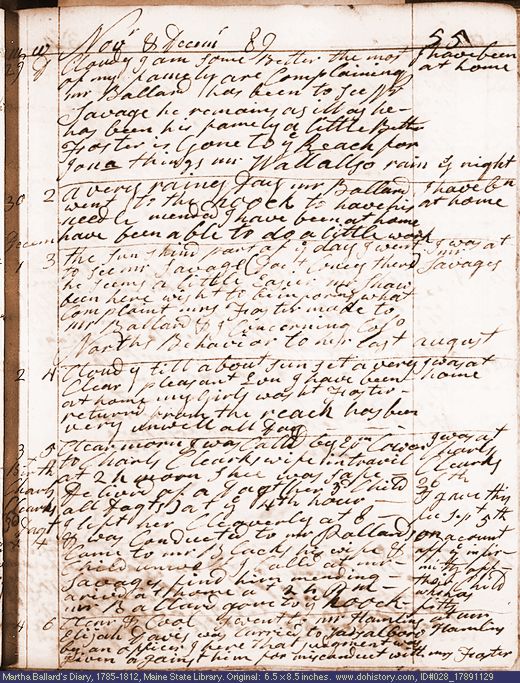 Novr & Decemr 89 55
m w
29 g Cloudy I am Some Better the most I have been
of my famely are Complaining at home
mr Ballard has been to See Mr
Savage he remains as ill as he
has been his famely a little Better
Foster is Gone to ye Reach for
Jona things mr Wall allso rain ys night
30 2 a very rainey day mr Ballard I have been
went to the hoock to have his at home
need mended I have been at home
have been able to do a little work
Decem
1 3 the Sun Shind part of ye day I went I was at
to See mr Savage Savages
he Seems a little Easier mr Shaw
been here wisht to be informd what
Complaint mrs Foster made to
mr Ballard & I Concerning Colo
Norths Behavior to mrs Last august
2 4 Cloudy till about sun set a very I was at
Clear & pleasant I have been home
at home my Girls washt Foster
returnd from the reach has been
very unwell all day
3 5 Clear morn I was Calld by I was at
Birth to Charls Clearks wife in travil Charls
at 2 h morn Shee was Safe Clearks
Charls Deliverd of a Dagt her 3d Child
Clearks all Dagts at ye 4th hour I gave this
Dagt I left her Cleverly at 8
I was Conducted to mr Ballards on account
4 Came to mr Blacks his wife & of infir-
Child unwell I allso at mr mity
Savages find him mending child
arivd at home a
mr Ballard gone to ye hoock
4 6 Clear & Cool I went to mr Hamlins at mr
Elijah Davis was Carried to Vassalboro Hamlins
by an officer
given against them for misconduct with my Foster
Martha Ballard's Diary, 1785-1812, Maine State Library. Original: 6.5 x 8.5 inches. www.dohistory.com, ID#028_17891129